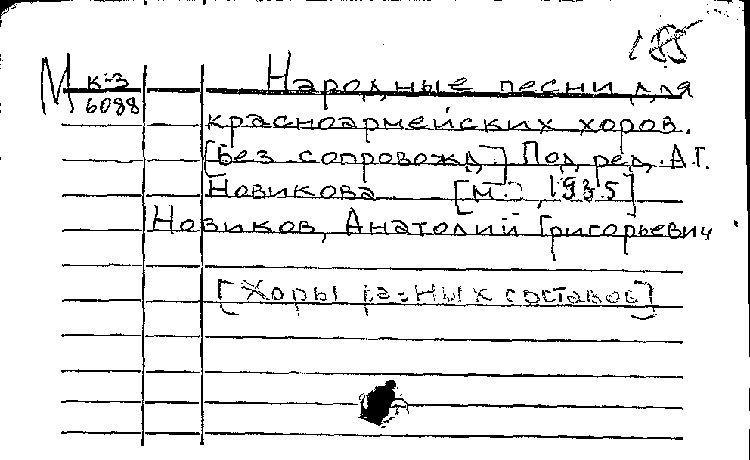 185
М к-3 Народные песни для
6088 красноармейских хоров.
[Без сопровожд.] Под ред. А.Г.
Новикова [М., 1935]
Новиков, Анатолий Григорьевич
[Хоры разных составов]